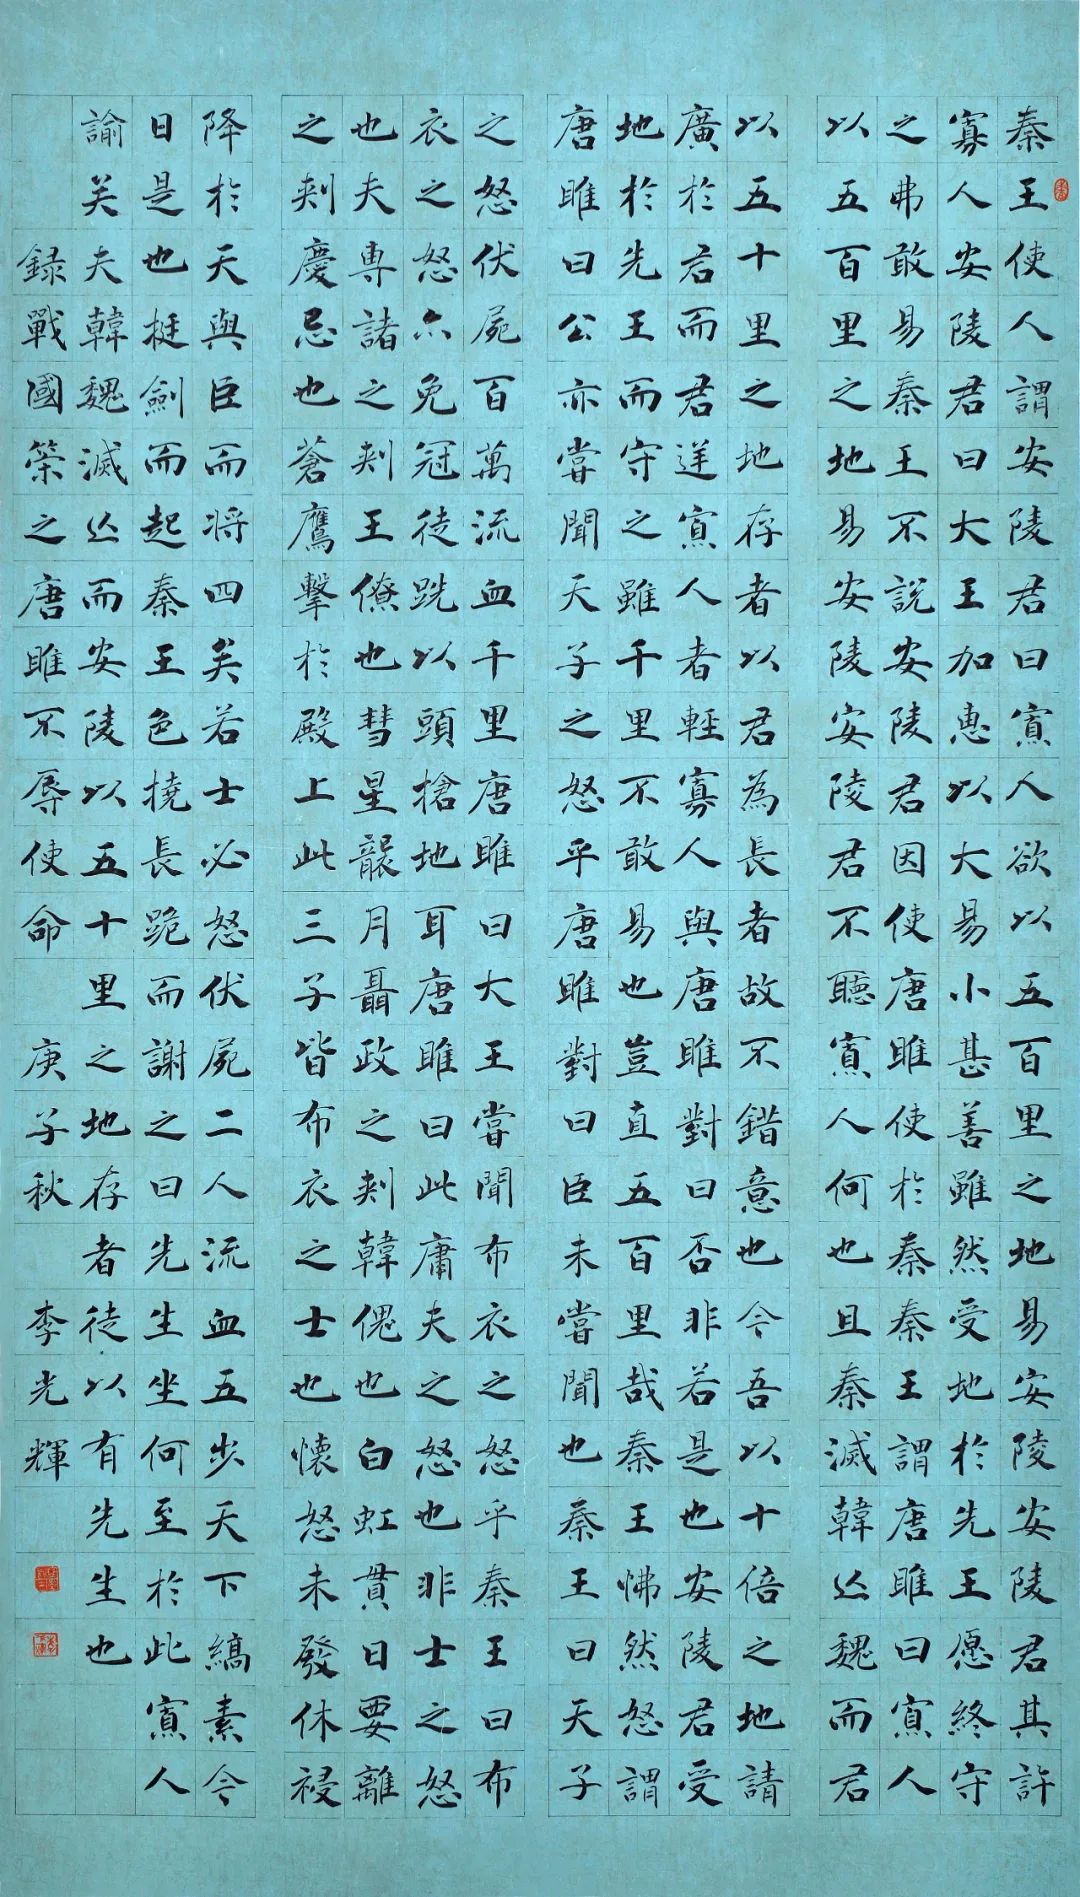 秦王使人謂安陵君曰寡人欲以五百里之地易安陵安陵君其許
寡人安陵君曰大王加惠以大易小甚善雖然受地於先王愿終守
之弗敢易秦王不說安陵君因使唐雎使於秦秦王謂唐雎曰寡人
以五百里之地易安陵安陵君不聽寡人何也且秦滅韓亾魏而君
以五十里之地存者以君為長者故不錯意也今吾以十倍之地請
廣於君而君逆寡人者輕寡人與唐雎對曰否非若是也安陵君受
地於先王而守之雖千里不敢易也豈直五百里哉秦王怫然怒謂
唐雎曰公亦嘗聞天子之怒乎唐雎對曰臣未嘗聞也秦王曰天子
之怒伏屍百萬流血千里唐雎曰大王嘗聞布衣之怒乎秦王曰布
衣之怒亦免冠徒跣以頭搶地耳唐雎曰此庸夫之怒也非士之怒
也夫專諸之刺王僚也彗星襲月聶政之刺韓傀也白虹貫日要離
之刺慶忌也蒼鷹擊於殿上此三子皆布衣之士也懷怒未發休祲
降於天與臣而将四矣若士必怒伏屍二人流血五步天下縞素今
日是也挺劍而起秦王色撓長跪而謝之曰先生坐何至於此寡人
諭矣夫韓魏滅亾而安陵以五十里之地存者徒以有先生也
録戰國策之唐雎不辱使命 庚子秋 李光輝